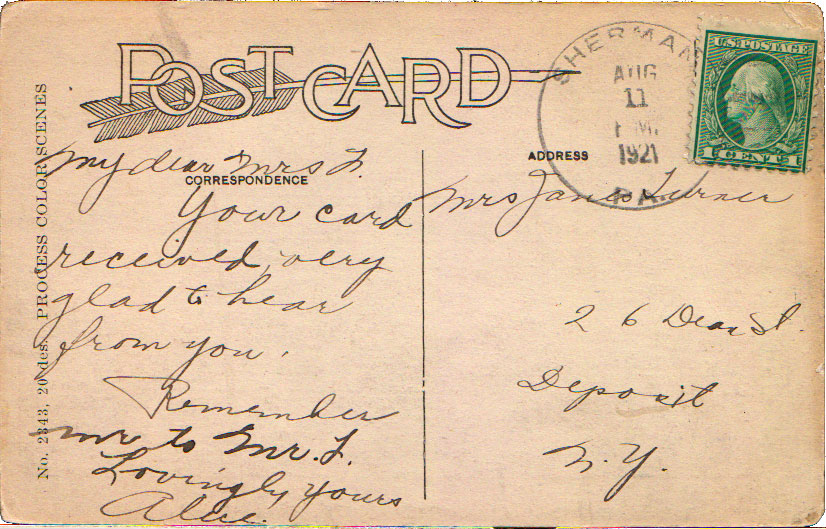 POST CARD
SHERMAN
PA.
AUG
11
P M.
1921
U.S. POSTAGE
1 CENT 1
ADDRESS
CORRESPONDENCE
No. 2343, 20 des. PROCESS COLOR SCENES
My dear Mrs T.
Your card
received, very
glad to hear
from you.
Remember
me to Mr. T.
Lovingly yours
Alice.
Mrs James Turner
26 Dean St.
Deposit
N.Y.